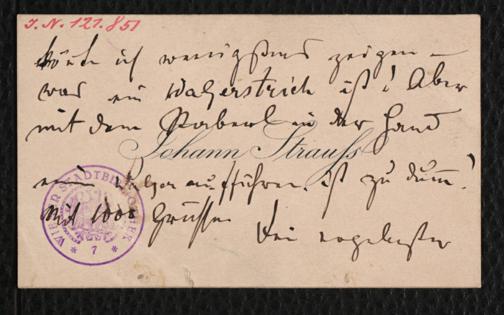 J. N. 121.851
könnte ich wenigstens zeigen –
was ein Walzerstrich ist! Aber
mit dem Staberl in der Hand
Johann Strauss
ein Walzer aufführen ist zu dumm!
Mit 1000 Grüssen
Dein ergebenster
WIENER STADTBIBLIOTHEK
* 7 *